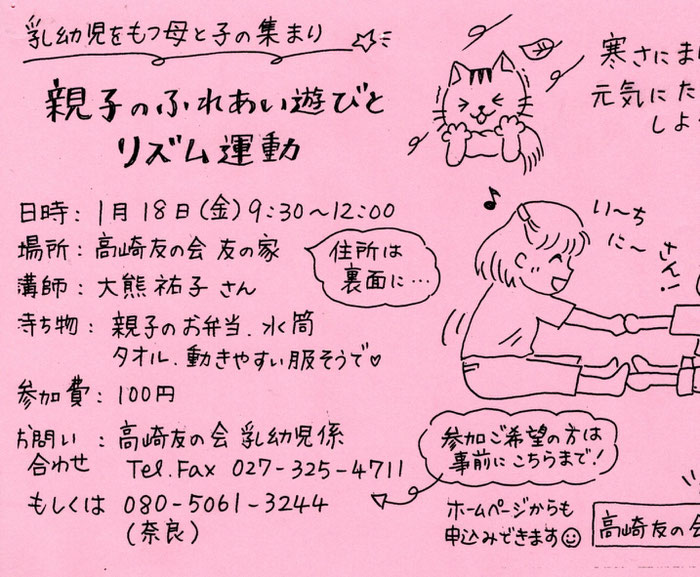 乳幼児をもつ母と子の集まり
親子のふれあい遊びと
リズム運動
寒さにま
元気にた
しよ
日時：1月18日(金)9:30〜12:00
場所：高崎友の会 友の家
住所は
裏面に…
講師：大熊祐子さん
持ち物：親子のお弁当.水筒
タオル.動きやすい服そうで♥
参加費：100円
お問い：高崎友の会 乳幼児係
合わせ Tel.Fax 027-325-4711
もしくは 080-5061-3244
(奈良)
い〜ち
に〜
さん!
参加ご希望の方は
事前にこちらまで!
ホームページからも
申込みできます
高崎友の会